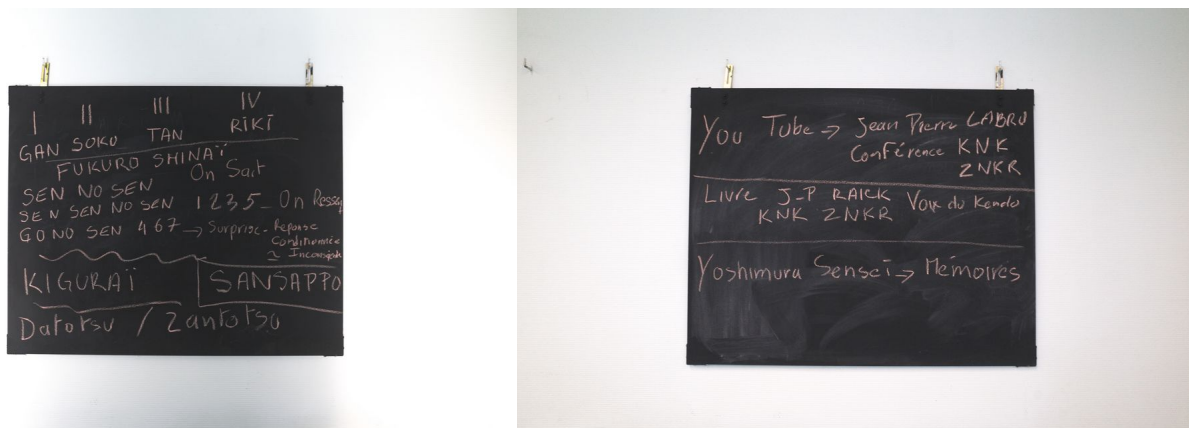 I II III IV
GAN SOKU TAN RIKI
FUKURO SHINAÏ
On Sait
SEN NO SEN
SEN SEN NO SEN 1 2 3 5 - On Ressent
GO NO SEN 4 6 7 → Surprise - Réponse
Conditionnée
≃ Inconsciente
KIGURAÏ SANSAPPO
Datotsu / Zantotsu
You Tube → Jean Pierre LABRU
Conférence KNK
ZNKR
Livre J-P RAICK Voix du Kendo
KNK ZNKR
Yoshimura Senseï → Mémoires